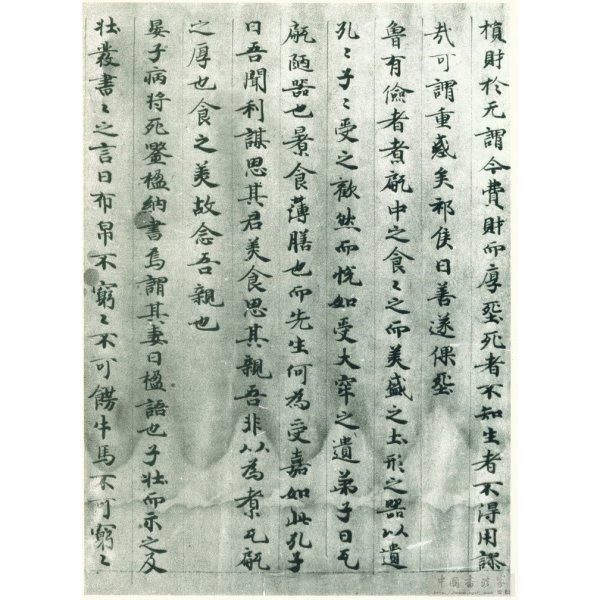 損財於无謂今費財而厚葬死者不知生者不得用謬
哉可謂重惑矣祁侯曰善遂倮葬
魯有儉者煮㼛中之食〻之而美盛之土形之器以遺
孔〻子〻受之歡然而悅如受大窂之遺弟子曰瓦
㼛陋器也煮食薄膳也而先生何為受嘉如此孔子
曰吾聞利謀思其君美食思其親吾非以為煮瓦㼛
之厚也食之美故念吾親也
晏子病将死鑿楹納書焉謂其妻曰楹語也子壮而示之及
壮發書〻之言曰布帛不窮〻不可餝牛馬不可窮〻
中國書法家